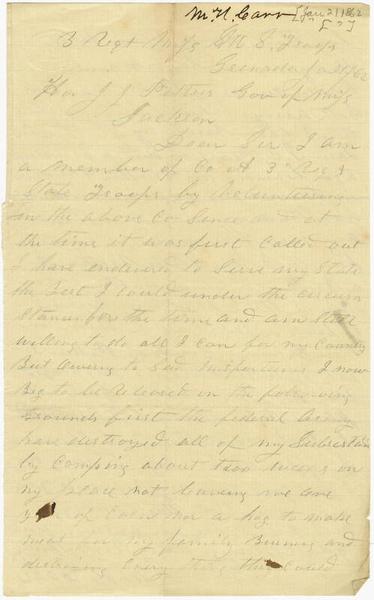 M. H. Carr [Jan 21 1862
[?]]
3 Regt Miss S. Troops
Grenada Jan 21 /62
Hon J J Pettus Gov of Miss
Jackson
Dear Sir I am
a member of Co A 3 Reg
State Troops by Volunteering
in the above Co Since at
the time it was first Called out
I have endevered to Serve my State
the Best I Could under the circum
stances for the time and am Still
willing to do all I Can for my Country
But owing to Sad I now
Beg to be Releved on the following
Grounds first the federal Army
have destroyed all of my Subsistance
by Camping about two weeks on
my place not leaving me one
of Corn nor a hog to make
meat for my family Burning and
destroying Every thing they Could